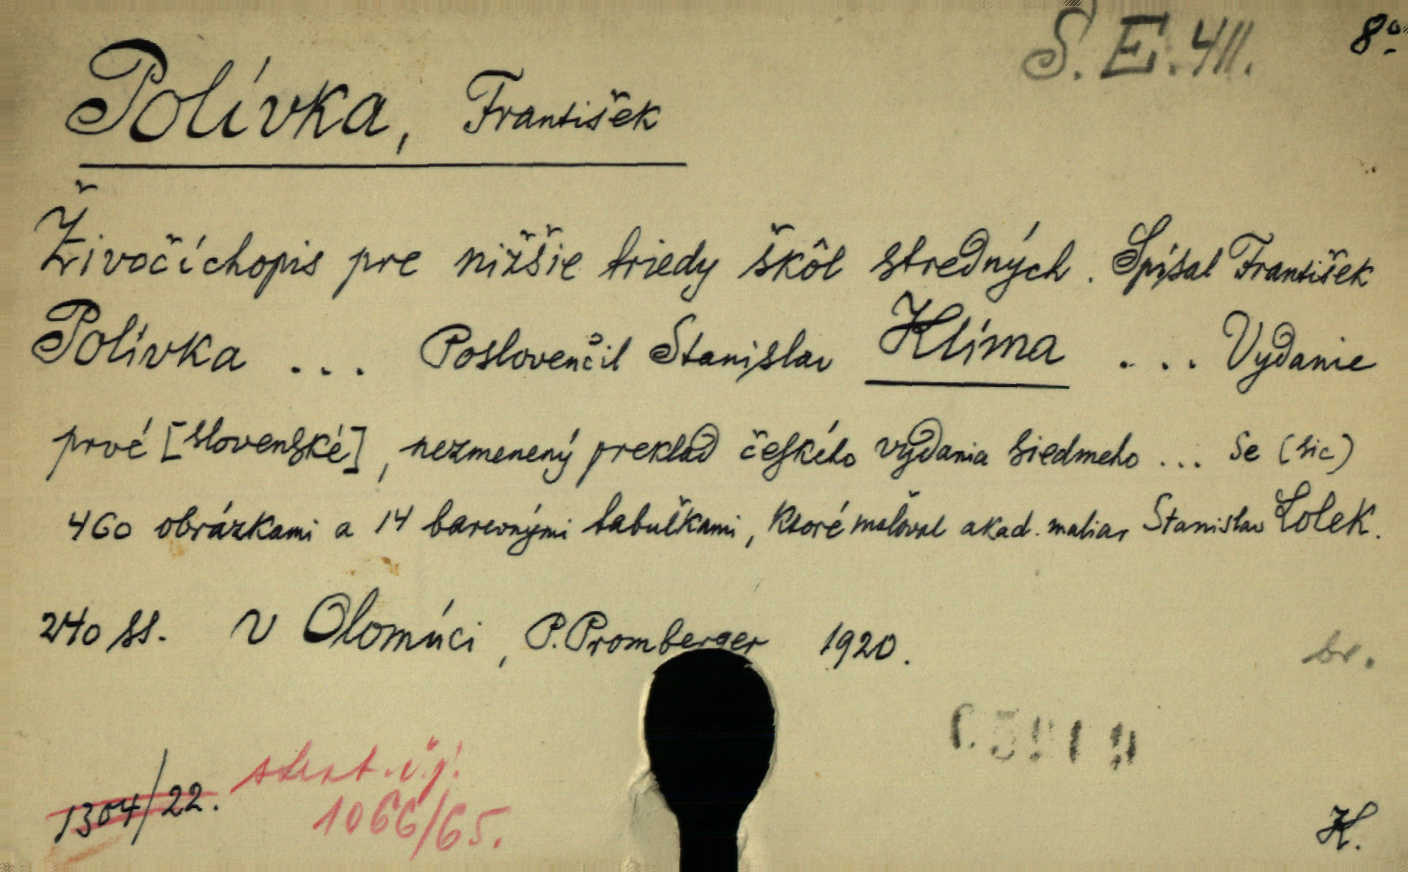 S. E. 411. 8°.
Polívka, František
Živočíchopis pre nižšie triedy škôl stredných. Spísal František
Polívka ... Poslovenčil Stanislav Klíma ... Vydanie
prvé [slovenské], nezmenený preklad českého vydania siedmeho ... Se (sic)
460 obrázkami a 14 barevnými tabuľkami, ktoré maľoval akad. maliar Stanislav Lolek.
240 ss. V Olomúci, P. Promberger 1920.
br.
1304/22.
1066/65.
H.